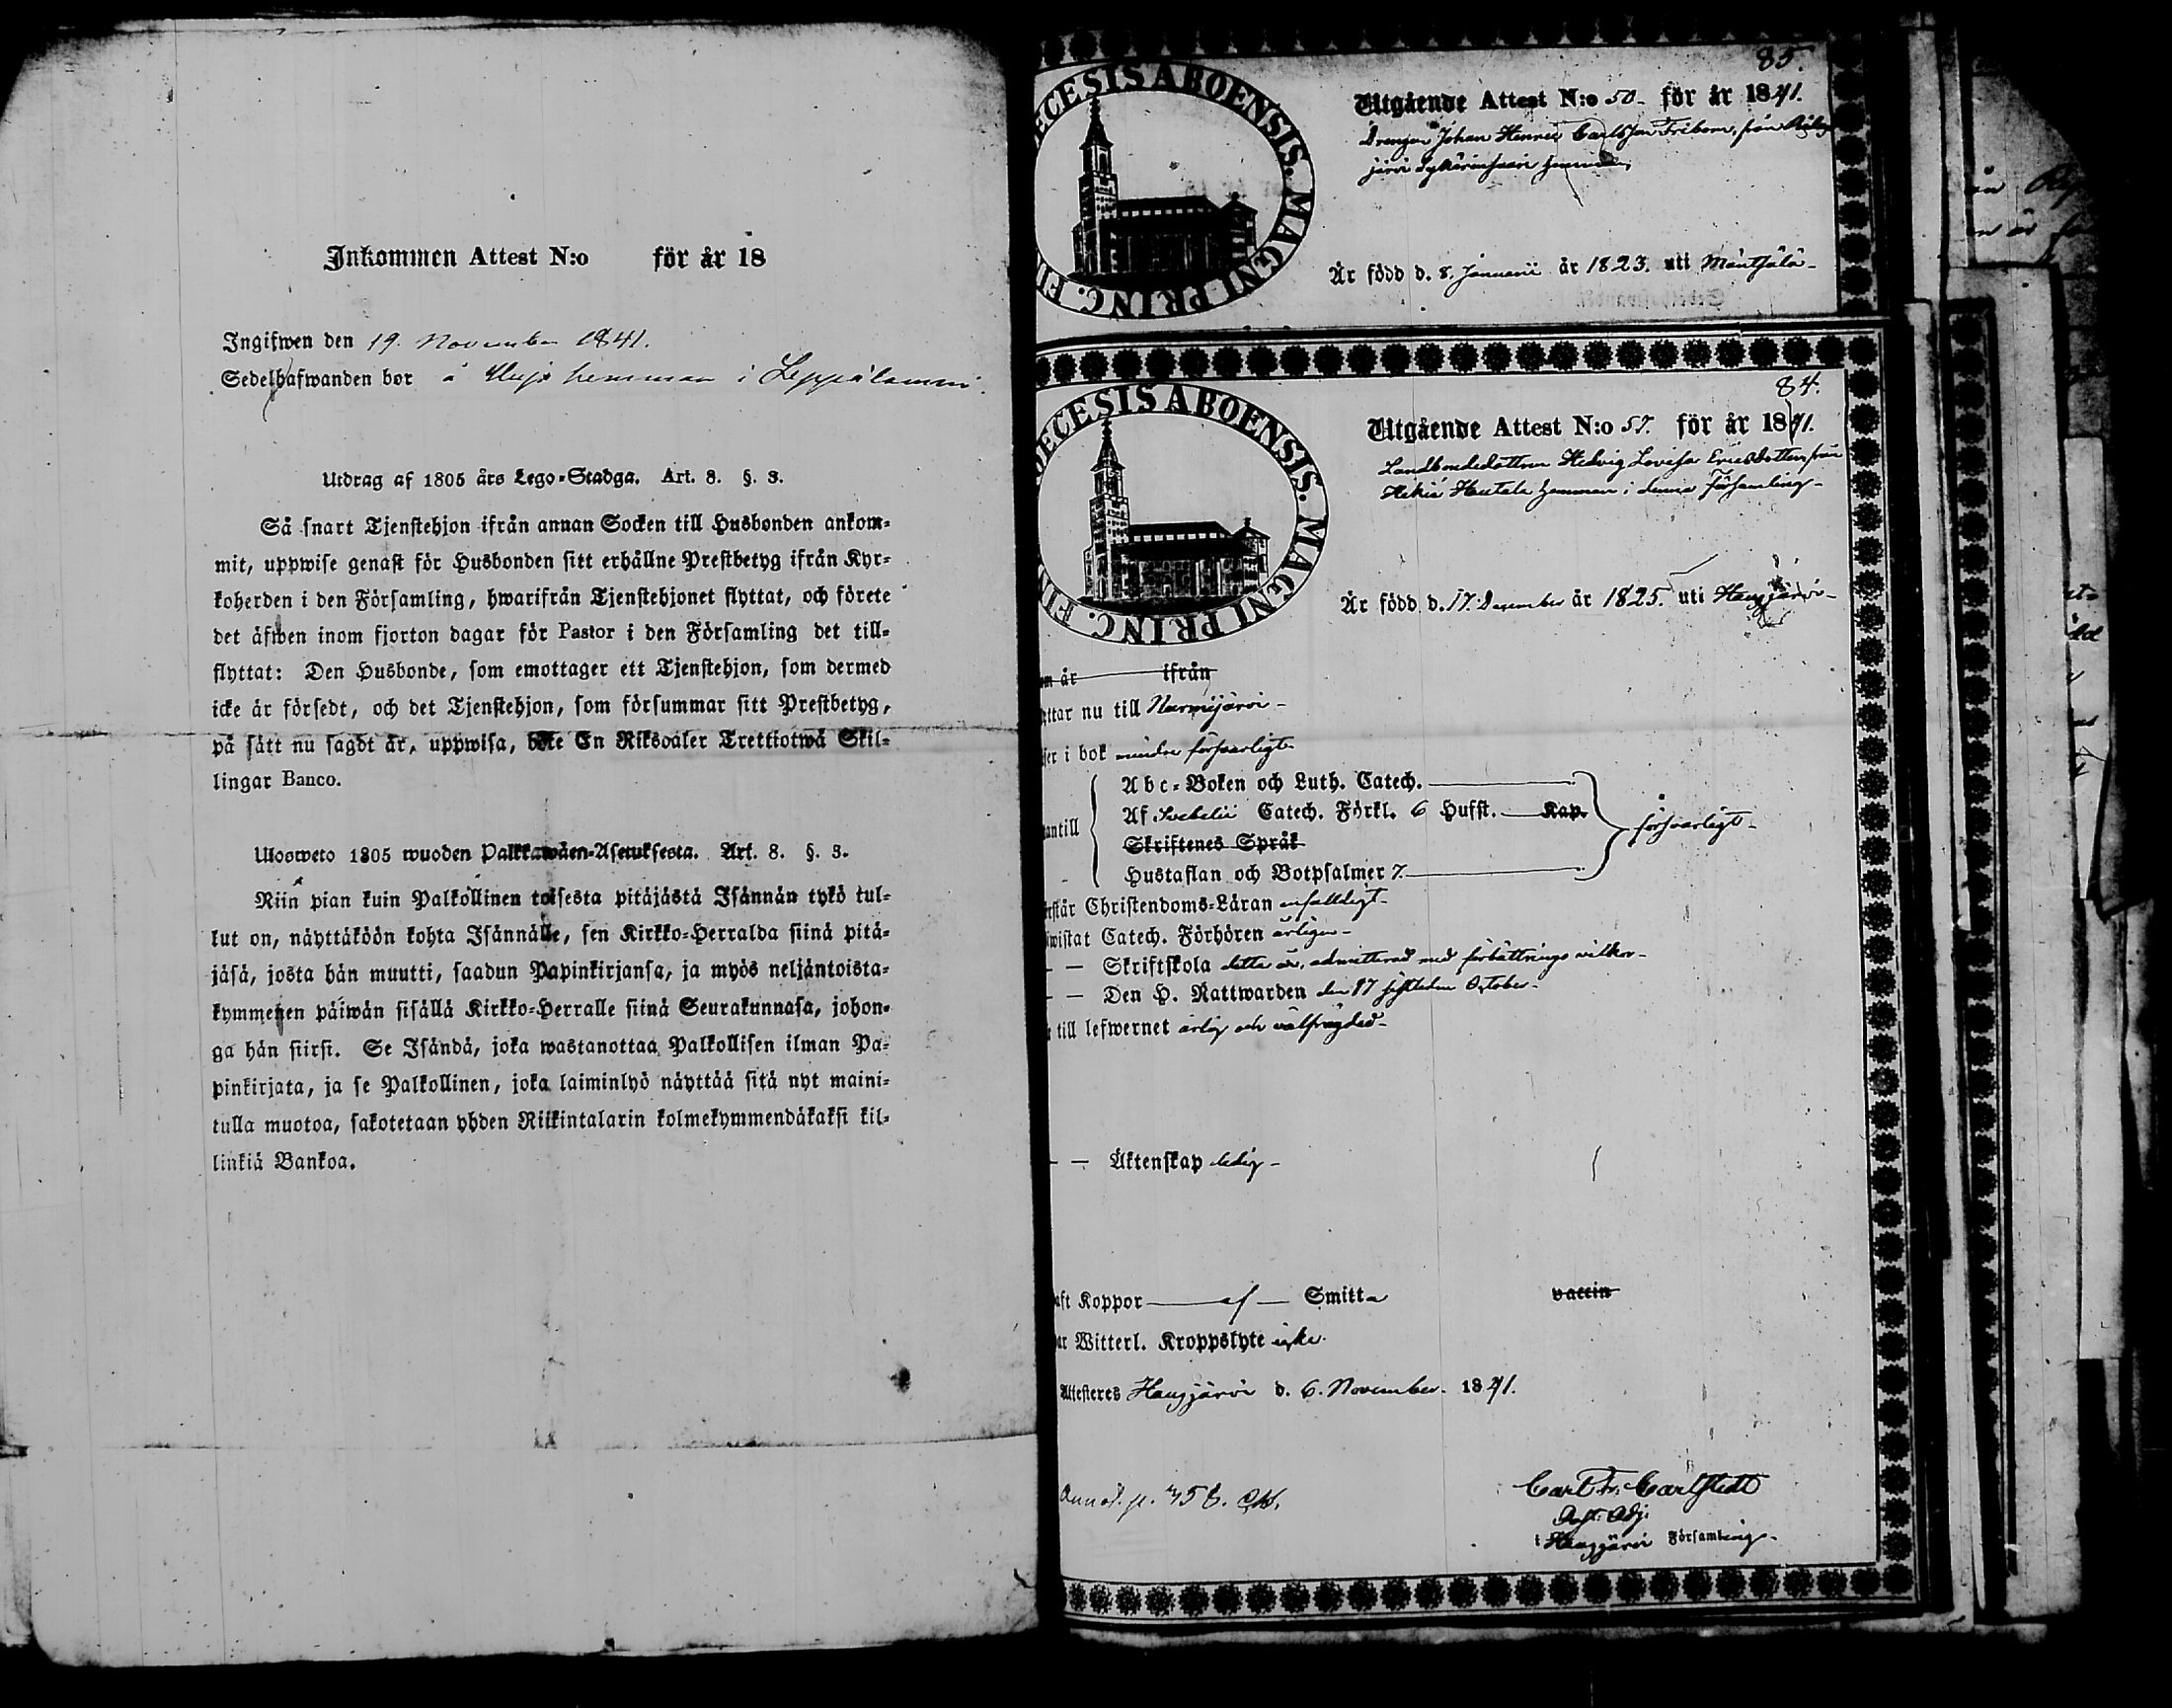 Inkommen Attest N:o för år 18
Ingifwen den 19. November 1841.
Sedelhafwanden bor å hemman i
Utdrag af 1805 års Lego-Stadga. Art. 8. §. 3.
Så snart Tjenstehjon ifrån annan Socken till Husbonden ankom-
mit, uppwise genast för Husbonden sitt erhållne Prestbetyg ifrån Kyr-
koherden i den Församling, hwarifrån Tjenstehjonet flyttat, och förete
det äfwen inom fjorton dagar för Pastor i den Församling det till-
flyttat: Den Husbonde, som emottager ett Tjenstehjon, som dermed
icke är försedt, och det Tjenstehjon, som försummar sitt Prestbetyg,
på sätt nu sagdt är, uppwisa, böte En Riksdaler Trettiotwå Skil-
lingar Banco.
Ulosweto 1805 wuoden Palkkawäen-Asetuksesta. Art. 8. §. 3.
Niin pian kuin Palkollinen toisesta pitäjästä Isännän tykö tul-
lut on, näyttäköön kohta Isännälle, sen Kirkko-Herralda siinä pitä-
jäsä, josta hän muutti, saadun Papinkirjansa, ja myös neljäntoista-
kymmenen päiwän sisällä Kirkko-Herralle siinä Seurakunnasa, johon-
ga hän siirsi. Se Isändä, joka wastanottaa Palkollisen ilman Pa-
pinkirjata, ja se Palkollinen, joka laiminlyö näyttää sitä nyt maini-
tulla muotoa, sakotetaan yhden Riikintalarin kolmekymmendäkaksi kil-
linkiä Bankoa.
85.
ECESIS ABOENSIS. MAGNI PRINC. FI
Utgående Attest N:o 50 för år 1841.
Drengen Johan Henric Carlsson Fribom, från
järvi hemman
Är född d. 8. Januarii år 1823. uti Mäntsälä
84.
DECESIS ABOENSIS. MAGNI PRINC. FIN
Utgående Attest N:o 57. för år 1841.
Landbondedottren Hedvig Lovisa Ericsdotter från
Hikiä Hautala hemman i denna Församling
Är född d. 17 December år 1825. uti Hausjärvi
m år ifrån
ttar nu till Nurmijärvi
ser i bok mindre försvarligt
antill
Abc-Boken och Luth. Catech.
Af Svebelii Catech. Förkl. 6 Hufst. Kap.
Skriftenes Språk
Hustaflan och Botpsalmer 7.
försvarligt
rstår Christendoms-Läran enfaldigt
wistat Catech. Förhören årligen
— — Skriftskola detta år, admitterad med förbättrings vilkor
— — Den H. Nattwarden den 17 sistleden October
till lefwernet ärlig och välfrägdad
— — Äktenskap ledig
aft Koppor af Smitta vaccin
ar Witterl. Kroppslyte icke.
Attesteres Hausjärvi d. 6. November. 1841.
Annot. p. 458.
Carl Fr. Carlstedt
Past. Adj.
i Hausjärvi Församling